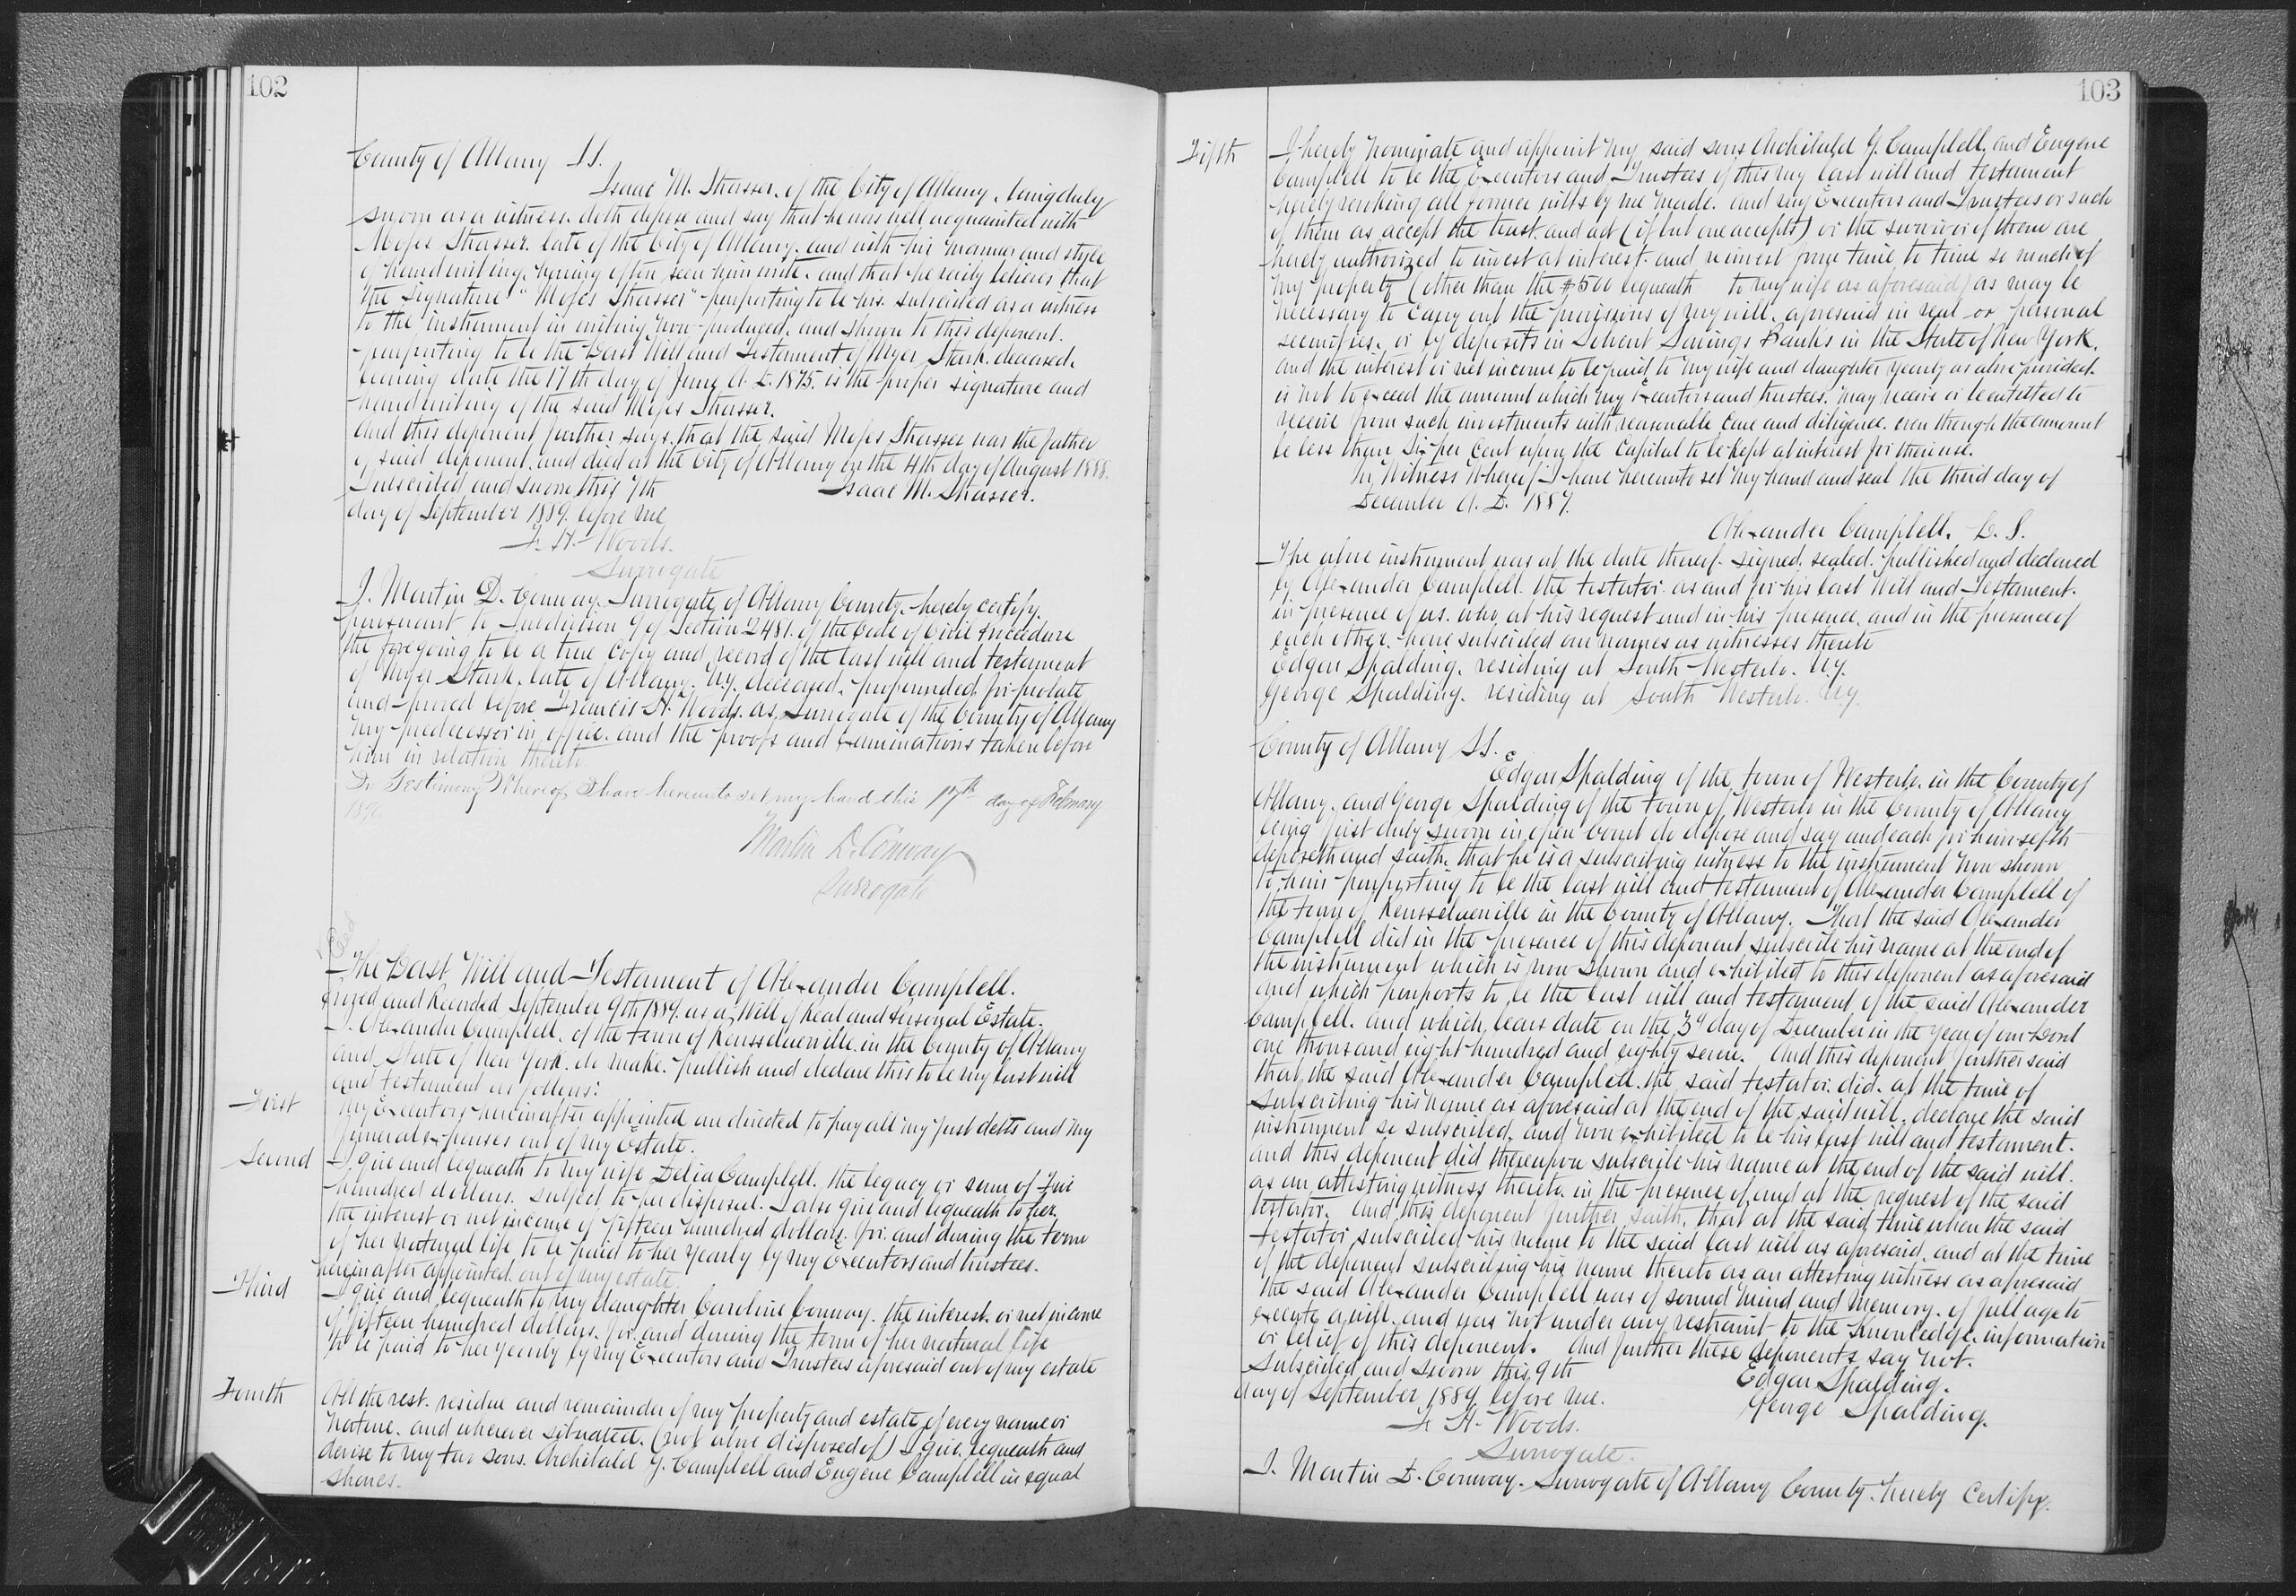 102
County of Albany SS.
Isaac M. Strasser, of the City of Albany, being duly
sworn as a witness, doth depose and say that he was well acquainted with
Moses Strasser, late of the City of Albany, and with his manner and style
of handwriting, having often seen him write, and that he verily believes that
the signature "Moses Strasser" purporting to be his, subscribed as a witness
to the instrument in writing now produced, and shown to this deponent,
purporting to be the Last Will and Testament of Myer Stark, deceased,
bearing date the 17th day of June A.D. 1875, is the proper signature and
handwriting of the said Moses Strasser.
And this deponent further says, that the said Moses Strasser was the father
of said deponent, and died at the City of Albany on the 4th day of August 1888.
Subscribed and sworn this 7th Isaac M. Strasser.
day of September 1889, before me
F. H. Woods.
Surrogate
I, Martin D. Conway, Surrogate of Albany County, hereby certify,
pursuant to Subdivision 9 of Section 2481, of the Code of Civil Procedure
the foregoing to be a true copy and record of the last will and testament
of Myer Stark, late of Albany, N.y. deceased, propounded for probate
and proved before Francis H. Woods, as Surrogate of the County of Albany
my predecessor in office, and the proofs and examinations taken before
him in relation thereto.
In Testimony Whereof, I have hereunto set my hand this 17th day of February
189
Martin D. Conway
Surrogate
The Last Will and Testament of Alexander Campbell.
Proved and Recorded September 9th 1889. as a Will of Real and Personal Estate.
I, Alexander Campbell, of the town of Rensselaerville, in the County of Albany
and State of New York, do make, publish and declare this to be my last will
and testament as follows:
First My Executors hereinafter appointed are directed to pay all my just debts and my
funeral expenses out of my Estate.
Second I give and bequeath to my wife Delia Campbell, the legacy or sum of Five
hundred dollars, subject to her disposal. I also give and bequeath to her,
the interest or net income of fifteen hundred dollars, for and during the term
of her natural life, to be paid to her yearly by my Executors and trustees.
hereinafter appointed out of my estate
Third I give and bequeath to my daughter Caroline Conway, the interest, or net income
of fifteen hundred dollars, for and during the term of her natural life
to be paid to her yearly by my Executors and Trustees aforesaid out of my estate
Fourth All the rest, residue and remainder of my property and estate of every name or
nature, and wherever situated, (not above disposed of) I give, bequeath and
devise to my two sons, Archibald Y. Campbell and Eugene Campbell in equal
shares.
103
Fifth I hereby nominate and appoint my said sons Archibald Y. Campbell, and Eugene
Campbell to be the Executors and Trustees of this my last will and testament
hereby revoking all former wills by me made, and my Executors and Trustees or such
of them as accept the trust and act (if but one accepts) or the survivor of them are
hereby authorized to invest at interest, and reinvest from time to time so much of
my property (other than the $500 bequeath to my wife as aforesaid) as may be
necessary to carry out the provisions of my will, aforesaid in real or personal
securities, or by deposits in Solvent Savings Banks in the State of New York,
and the interest or net income to be paid to my wife and daughter yearly as above provided
is not to exceed the amount which my Executors and trustees, may receive or be entitled to
receive from such investments with reasonable care and diligence, even though the amount
be less than Six per cent upon the capital to be kept at interest for their use.
In Witness Whereof I have hereunto set my hand and seal the third day of
December A.D. 1887.
Alexander Campbell. L.S.
The above instrument was at the date thereof, signed, sealed, published and declared
by Alexander Campbell, the testator, as and for his last Will and Testament,
in presence of us, who, at his request and in his presence, and in the presence of
each other, have subscribed our names as witnesses thereto
Edgar Spalding, residing at South Westerlo. N.y.
George Spalding, residing at South Westerlo. N.y.
County of Albany SS.
Edgar Spalding of the town of Westerlo, in the County of
Albany, and George Spalding of the town of Westerlo in the County of Albany
being first duly sworn in open court do depose and say and each for himself
deposeth and saith, that he is a subscribing witness to the instrument now shown
to him purporting to be the last will and testament of Alexander Campbell of
the town of Rensselaerville in the County of Albany. That the said Alexander
Campbell did in the presence of this deponent, subscribe his name at the end of
the instrument which is now shown and exhibited to this deponent as aforesaid
and which purports to be the last will and testament of the said Alexander
Campbell, and which bears date on the 3d day of December in the year of our Lord
one thousand eight hundred and eighty seven. And this deponent further said
that, the said Alexander Campbell, the said testator, did, at the time of
subscribing his name as aforesaid at the end of the said will, declare the said
instrument so subscribed, and now exhibited to be his last will and testament.
and this deponent did thereupon subscribe his name at the end of the said will,
as an attesting witness thereto, in the presence of, and at the request of the said
testator. And this deponent further saith, that at the said time when the said
testator subscribed his name to the said last will as aforesaid, and at the time
of the deponent subscribing his name thereto as an attesting witness as aforesaid
the said Alexander Campbell was of sound mind and memory, of full age to
execute a will, and was not under any restraint to the knowledge, information
or belief of this deponent. And further these deponents say not.
Subscribed and Sworn this 9th Edgar Spalding.
day of September 1889, before me. George Spalding.
F. H. Woods.
Surrogate.
I, Martin D. Conway, Surrogate of Albany County, hereby certify,